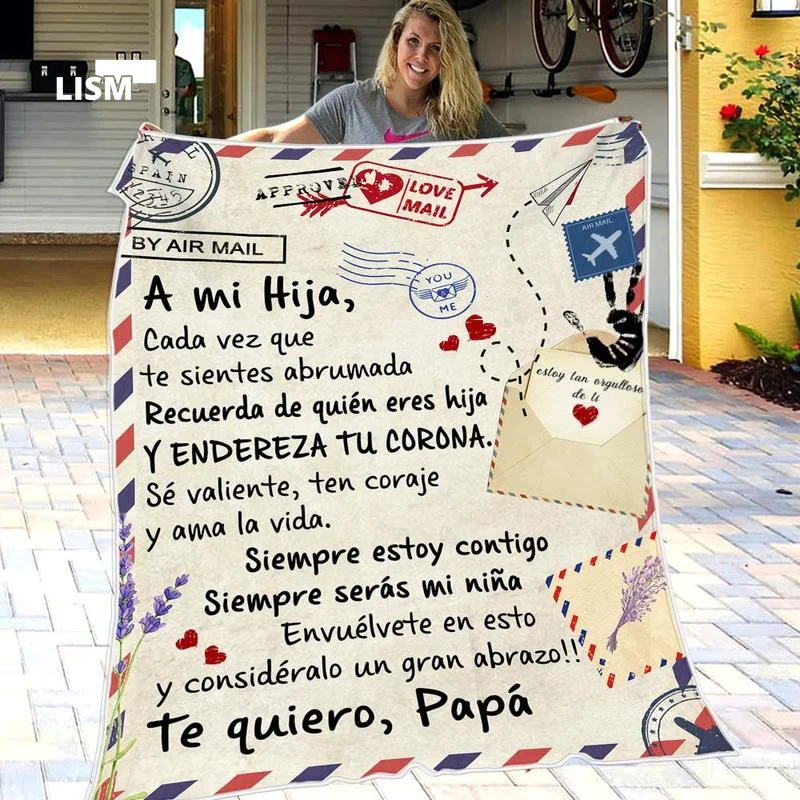 LISM
SPAIN
12345
APPROVED
LOVE
MAIL
AIR MAIL
BY AIR MAIL
YOU
ME
A mi Hija,
Cada vez que
te sientes abrumada
Recuerda de quién eres hija
Y ENDEREZA TU CORONA.
Sé valiente, ten coraje
y ama la vida.
Siempre estoy contigo
Siempre serás mi niña
Envuélvete en esto
y considéralo un gran abrazo!!
Te quiero, Papá
estoy tan orgulloso
de ti